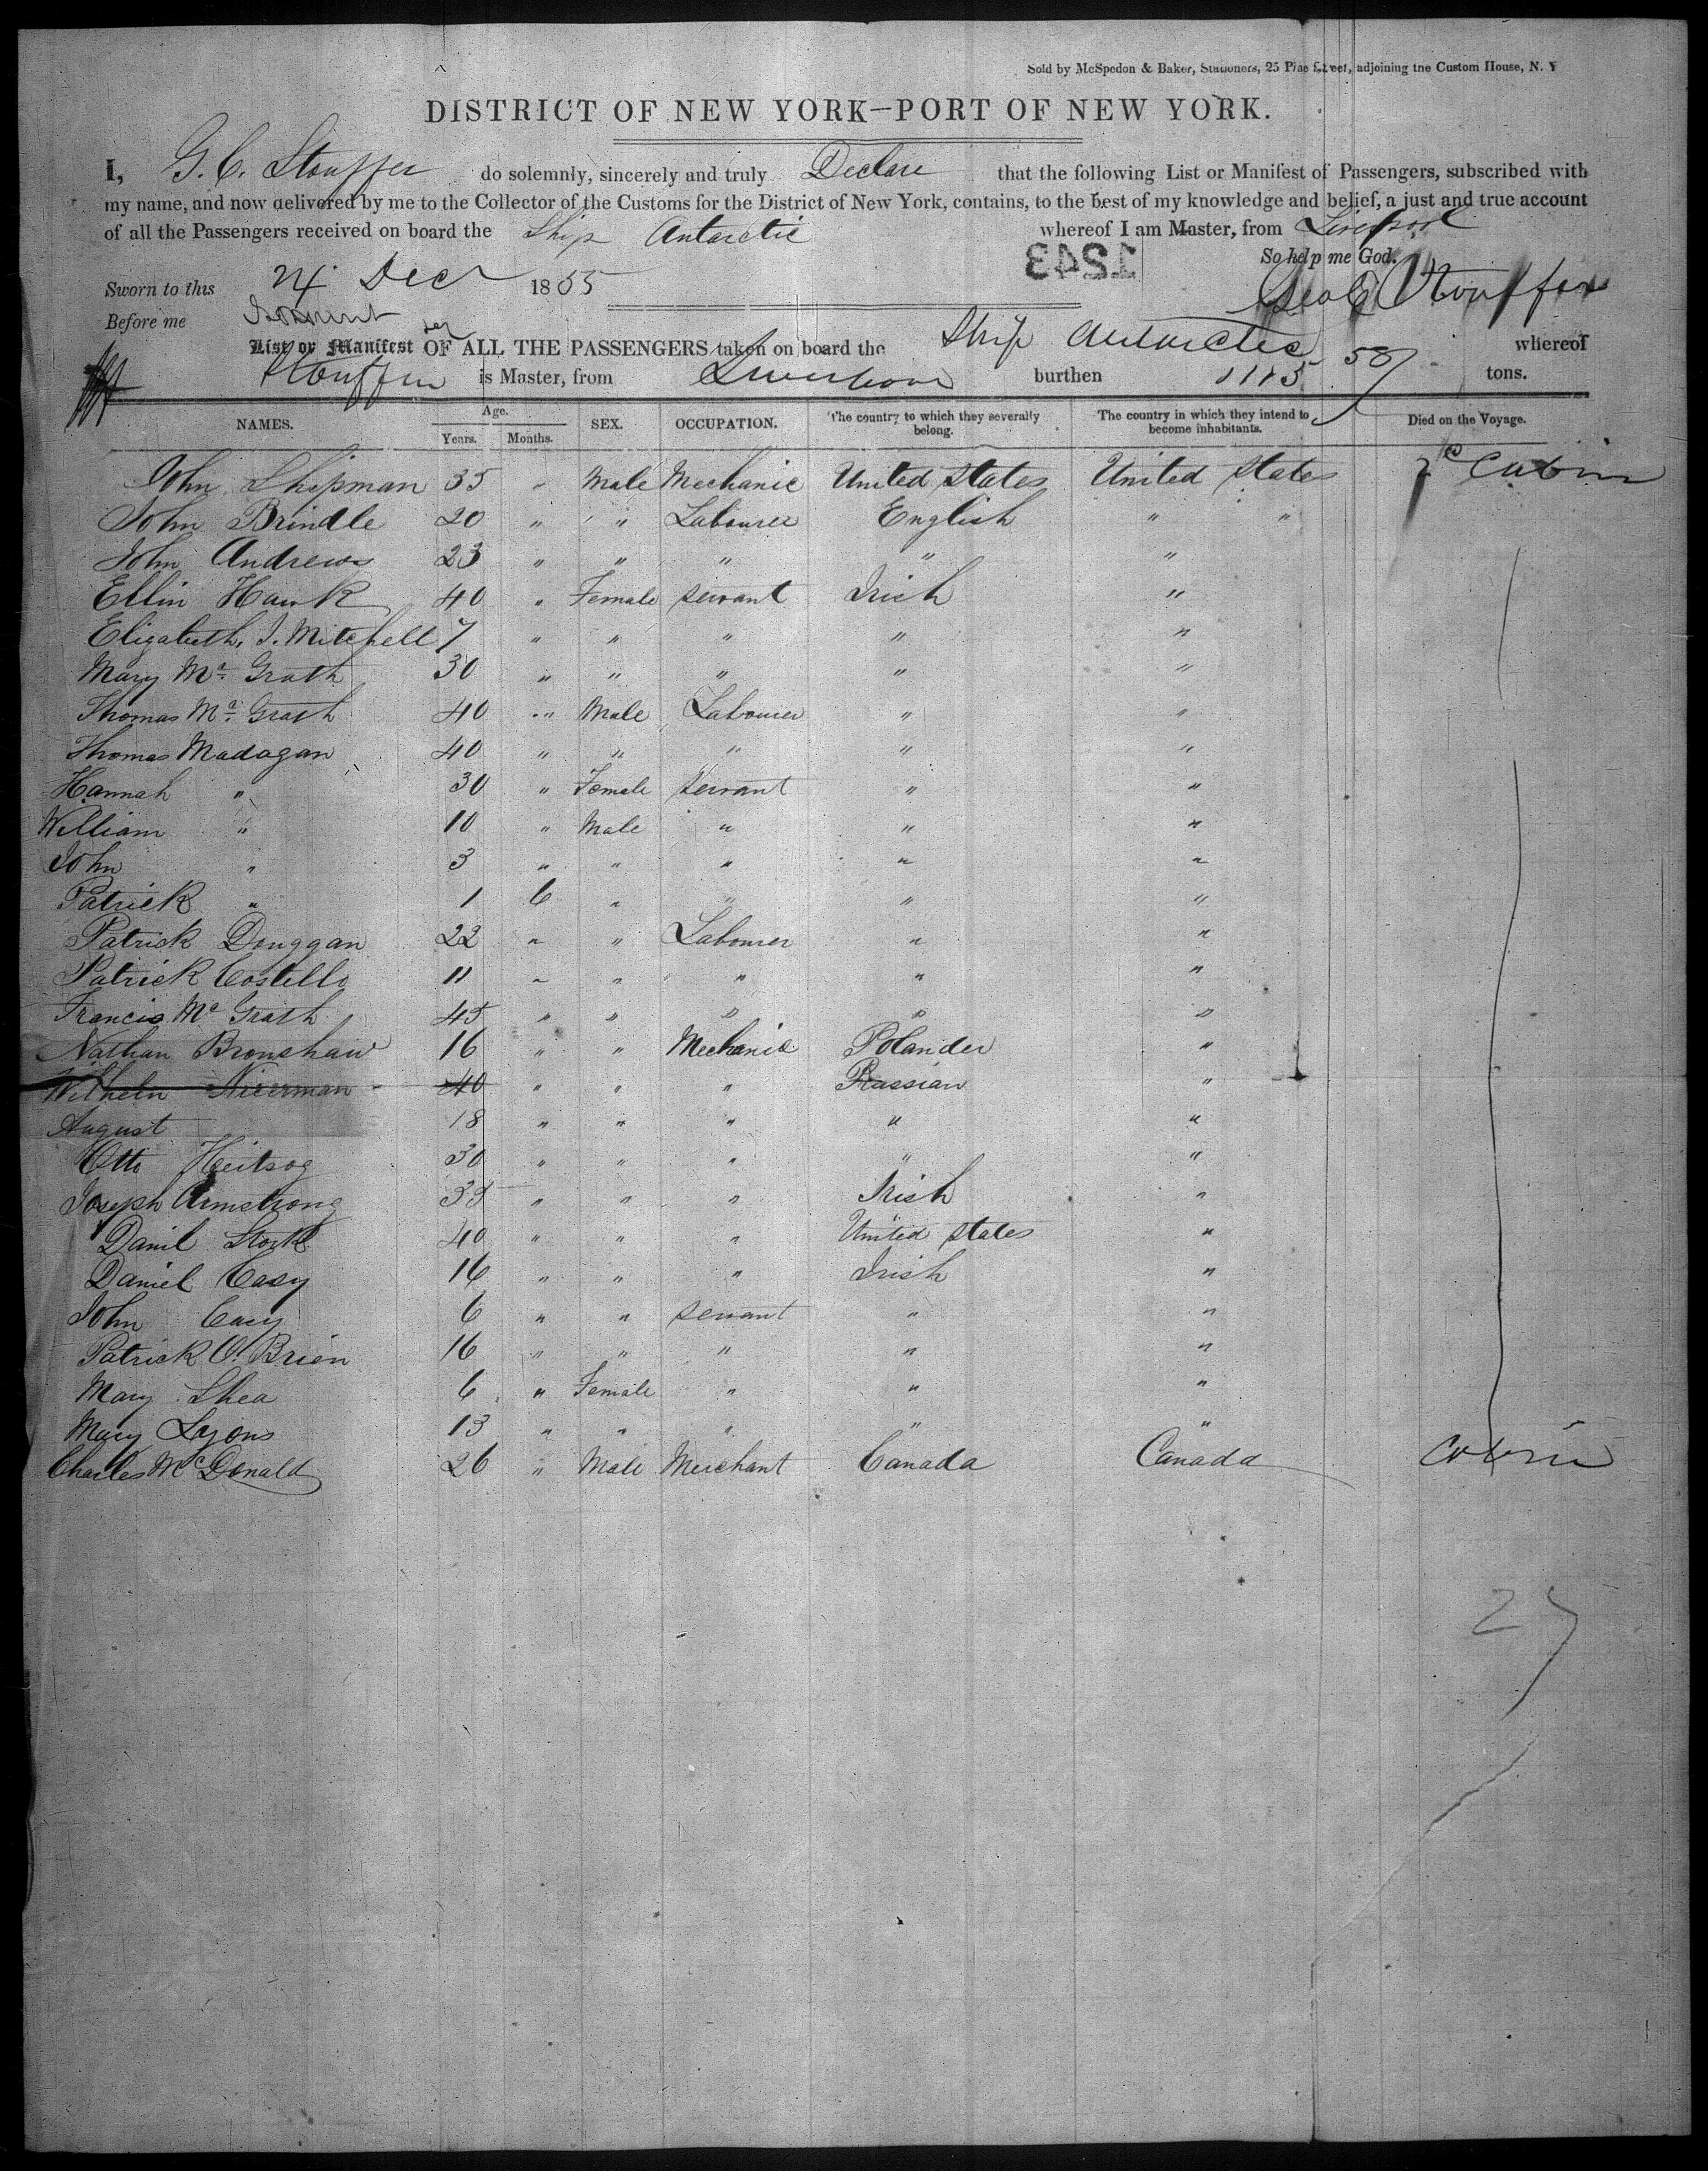 Sold by McSpedon & Baker, Stationers, 25 Pine Street, adjoining the Custom House, N. Y
DISTRICT OF NEW YORK—PORT OF NEW YORK.
I, G. C. Stouffer do solemnly, sincerely and truly Declare that the following List or Manifest of Passengers, subscribed with
my name, and now delivered by me to the Collector of the Customs for the District of New York, contains, to the best of my knowledge and belief, a just and true account
of all the Passengers received on board the Ship Antarctic whereof I am Master, from Liverpool
1243
So help me God.
Sworn to this 24 Dec 1855
Geo C Stouffer
Before me
List or Manifest OF ALL THE PASSENGERS taken on board the Ship Antarctic whereof
Stouffer is Master, from Liverpool burthen 1115 58/ tons.
NAMES. Age. Years. Months. SEX. OCCUPATION. The country to which they severally belong. The country in which they intend to become inhabitants. Died on the Voyage.
John Shipman 35 " Male Mechanic United States United States Cabin
John Brindle 20 " " Labourer English " "
John Andrews 23 " " " " "
Ellin Hawk 40 " Female servant Irish "
Elizabeth, J. Mitchell 7 " " " " "
Mary Mc Grath 30 " " " " "
Thomas Mc Grath 40 " Male Labourer " "
Thomas Madagan 40 " " " " "
Hannah " 30 " Female servant " "
William " 10 " Male " " "
John " 3 " " " " "
Patrick " 1 6 " " " "
Patrick Douggan 22 " " Labourer " "
Patrick Costello 11 " " " " "
Francis Mc Grath 45 " " " " "
Nathan Bronshaw 16 " " Mechanic Polander "
Wilhelm Nicerman 40 " " " Prussian "
August 18 " " " " "
Otto Heitsog 30 " " " " "
Joseph Armstrong 35 " " " Irish "
Danil Stork 40 " " " United States "
Daniel Casy 16 " " " Irish "
John Casy 6 " " servant " "
Patrick O'Brien 16 " " " " "
Mary Shea 6 " Female " " "
Mary Lyons 13 " " " " "
Charles Mc Donald 26 " Male Merchant Canada Canada Cabin
27